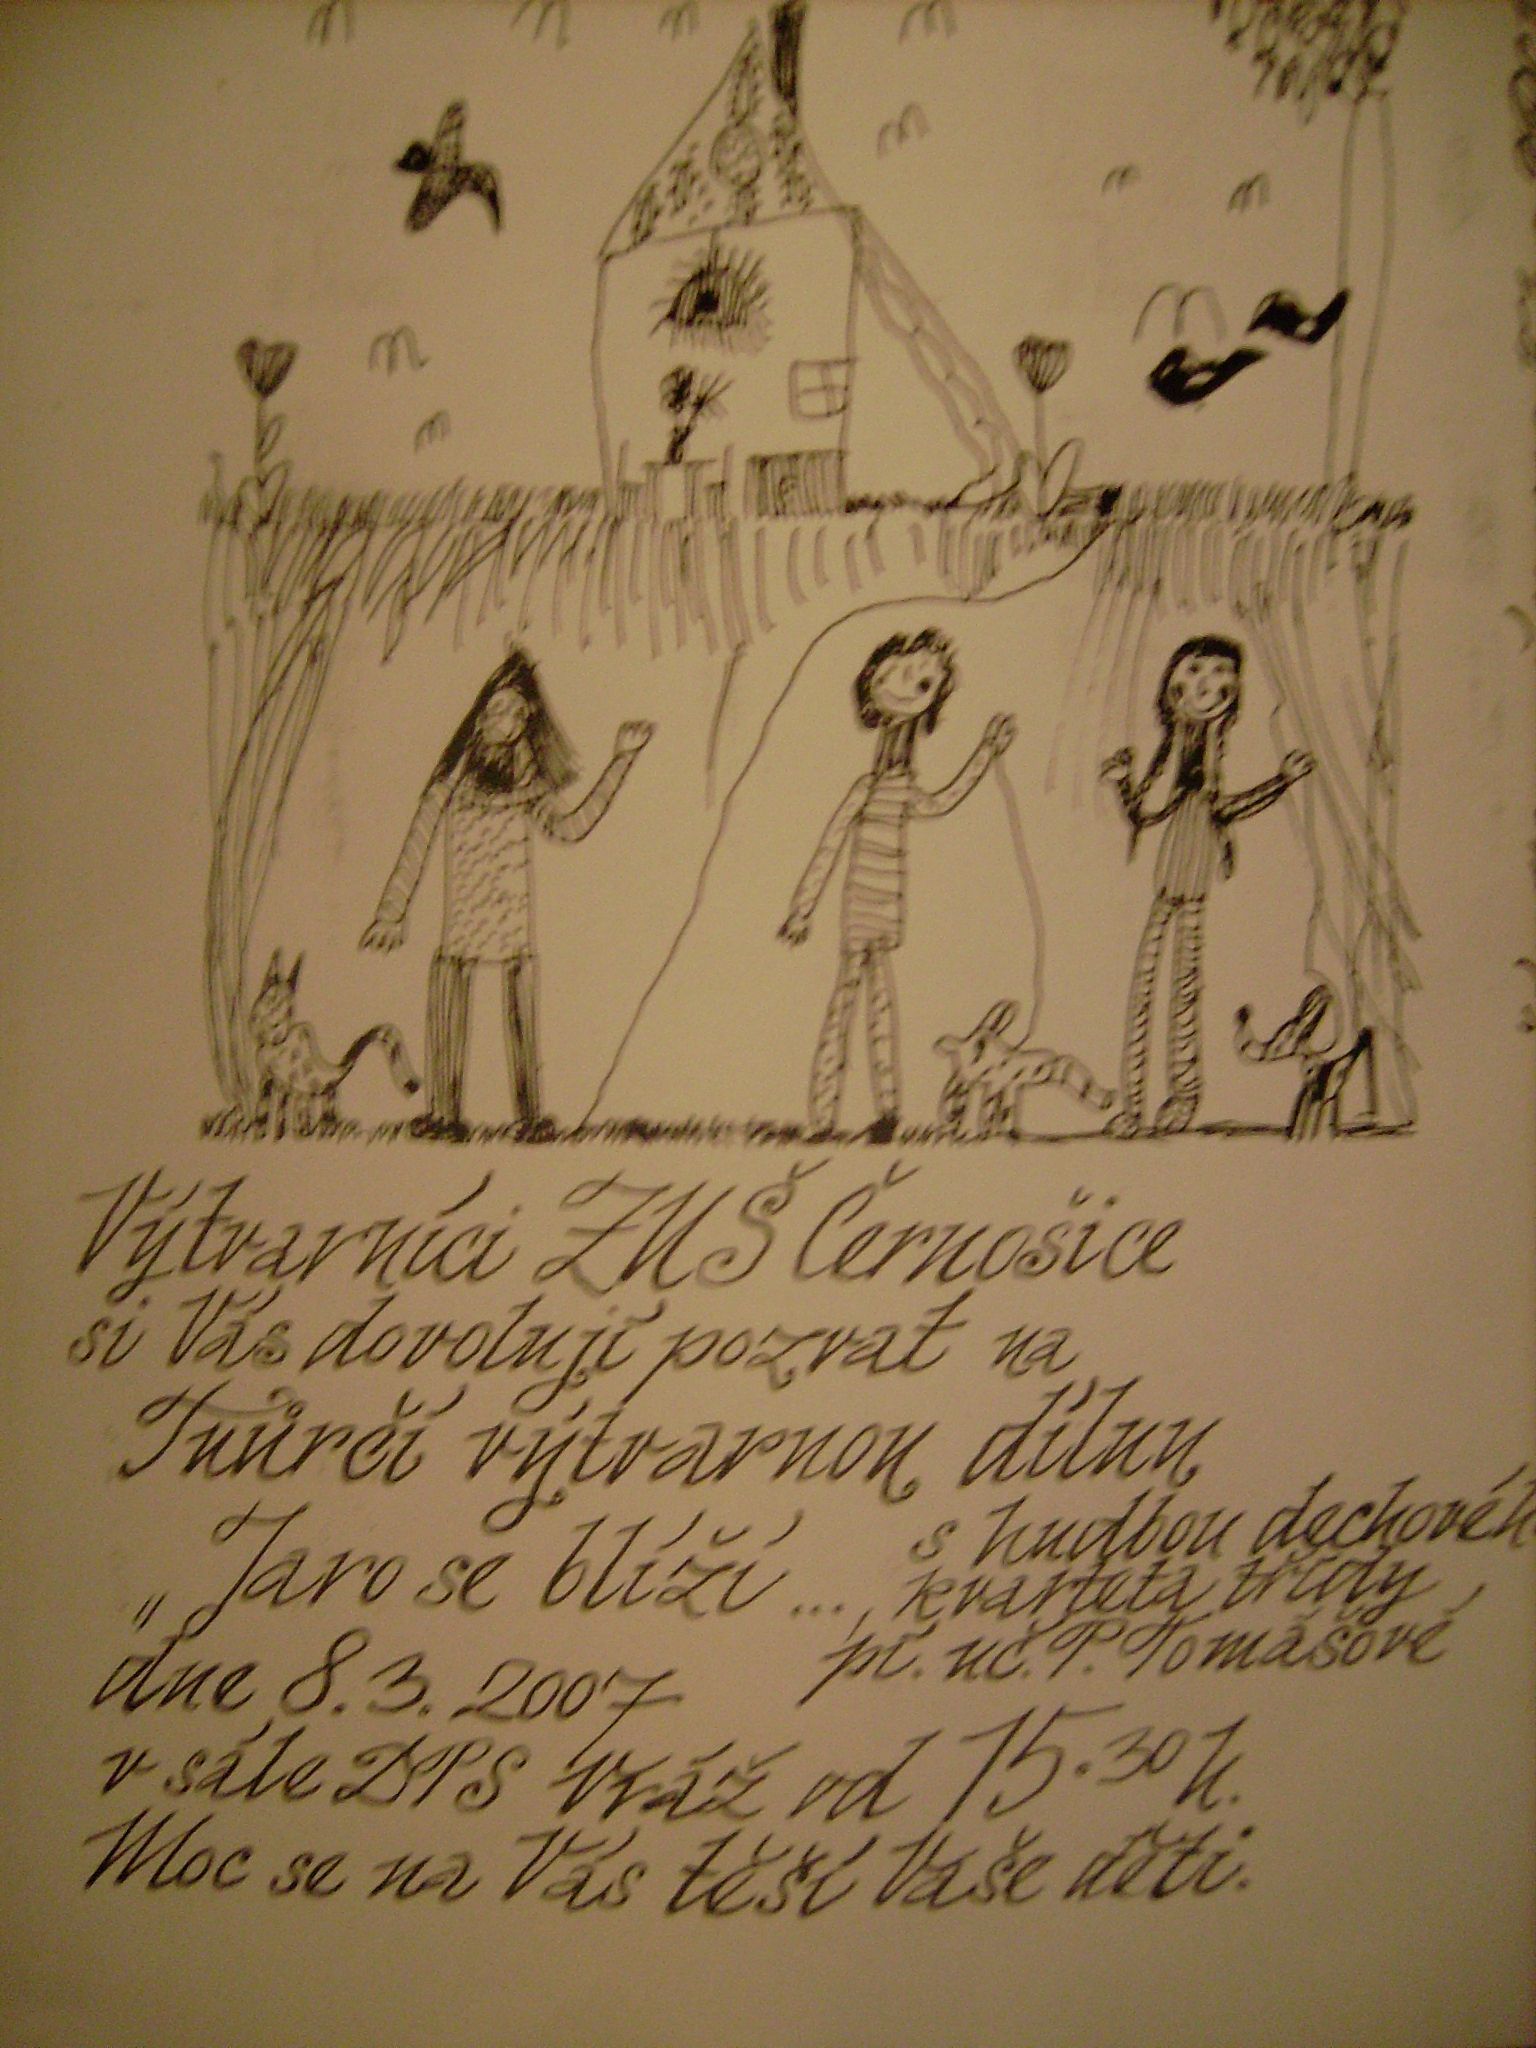 Výtvarníci ZUŠ Černošice
si Vás dovolují pozvat na
Tvůrčí výtvarnou dílnu
„Jaro se blíží ...,
s hudbou dechovéh
kvarteta třídy
př. uč. P. Tomášové
dne 8.3.2007
v sále DPS Vráž od 15.30 h.
Moc se na Vás těší Vaše děti.